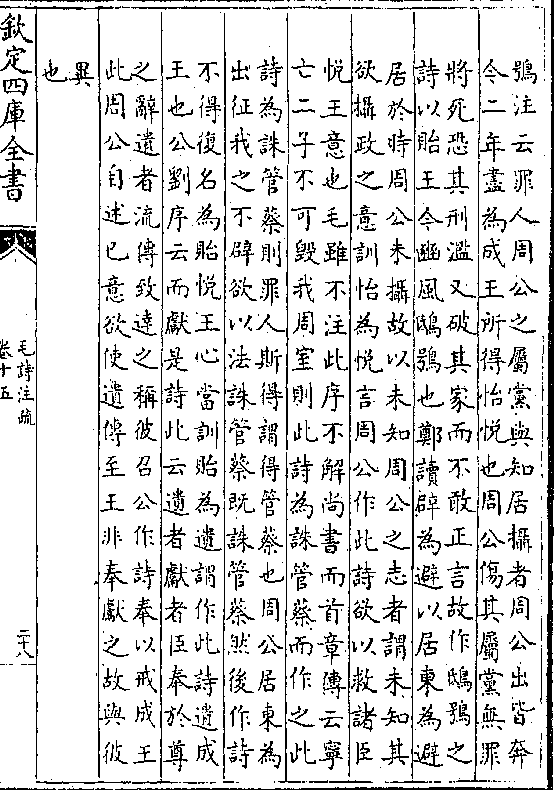 鴞注云罪人周公之屬黨與知居攝者周公出皆奔
今二年盡為成王所得怡悅也周公傷其屬黨無罪
將死恐其刑濫又破其家而不敢正言故作鴟鴞之
詩以貽王今豳風鴟鴞也鄭讀辟為避以居東為避
居於時周公未攝故以未知周公之志者謂未知其
欲攝政之意訓怡為悅言周公作此詩欲以救諸臣
悅王意也毛雖不注此序不解尚書而首章傳云寧
亡二子不可毀我周室則此詩為誅管蔡而作之此
詩為誅管蔡則罪人斯得謂得管蔡也周公居東為
出征我之不辟欲以法誅管蔡既誅管蔡然後作詩
不得復名為貽悅王心當訓貽為遺謂作此詩遺成
王也公劉序云而獻是詩此云遺者獻者臣奉於尊
之辭遺者流傳致達之稱彼召公作詩奉以戒成王
此周公自述已意欲使遺傳至王非奉獻之故與彼
異
也
欽定四庫全書
毛詩注疏
卷十五
二十八